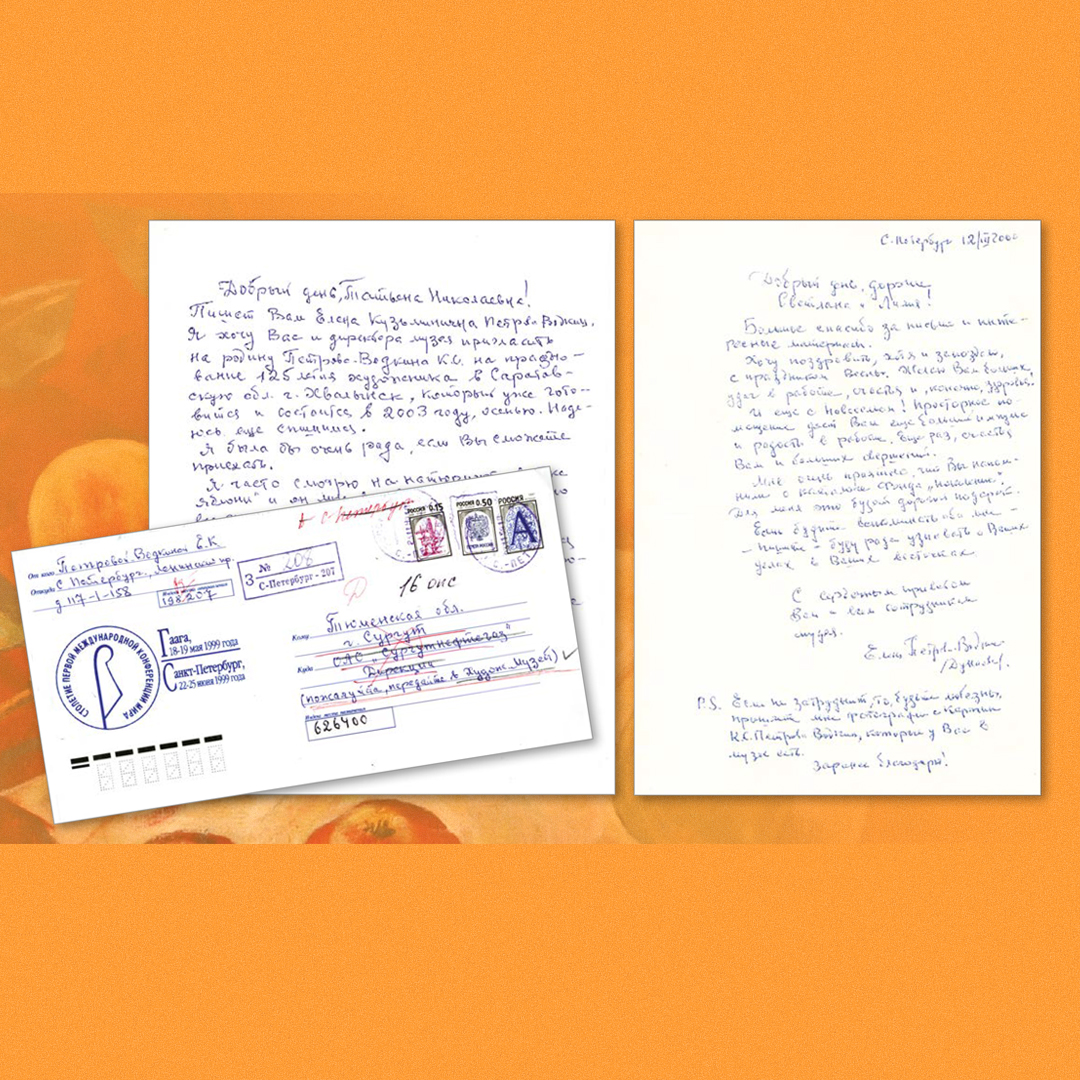 Добрый день, Татьяна Николаевна!
Пишет Вам Елена Кузьминична Петрова-Водкина.
Я хочу Вас и директора музея пригласить
на родину Петрова-Водкина К.С. на праздно-
вание 125 летия художника в Саратов-
скую обл. г. Хвалынск, который уже гото-
вится и состоится в 2003 году, осенью. Наде-
юсь, еще спишимся.
Я была бы очень рада, если Вы сможете
приехать.
Я часто смотрю на натюрморт
яблони" и он
А С-Петербург
РОССИЯ 0.15
РОССИЯ 0.50
РОССИЯ
А
От кого Петровой Водкиной Е.К
Откуда С Петербург, Ленинский пр.
д 117-1-158
198.207
З № 208
С-Петербург - 207
16 опс
СТОЛЕТИЕ ПЕРВОЙ МЕЖДУНАРОДНОЙ КОНФЕРЕНЦИИ МИРА
Гаага,
18-19 мая 1999 года
Санкт-Петербург,
22-25 июня 1999 года
Кому Тюменская обл.
г. Сургут
Куда ОАО „Сургутнефтегаз"
Дирекция
(пожалуйста, передайте в Худож. Музей)
626400
С-Петербург 12/III 2000
Добрый день, дорогие
Светлана и Лилия!
Большое спасибо за письмо и инте-
ресные материалы.
Хочу поздравить, хотя и запоздало,
с праздником Весны. Желаю Вам больших
удач в работе, счастья и, конечно, здоровья.
И еще с Новосельем! Просторное по-
мещение даст Вам еще больше
и радости в работе. Еще раз, счастья
Вам и больших свершений.
Мне очень приятно, что Вы
о каталоге
Для меня это будет дорогой подарок.
Если будете вспоминать обо мне –
– пишите – буду рада узнать о Ваших
делах и Ваших
С сердечным приветом
Вам и всем сотрудникам
музея.
Елена Петрова-Водкина
P.S. Если не затруднит, то, будьте любезны,
пришлите мне фотографии с картин
К.С. Петрова-Водкина, которые у Вас в
музее есть.
Заранее благодарю!